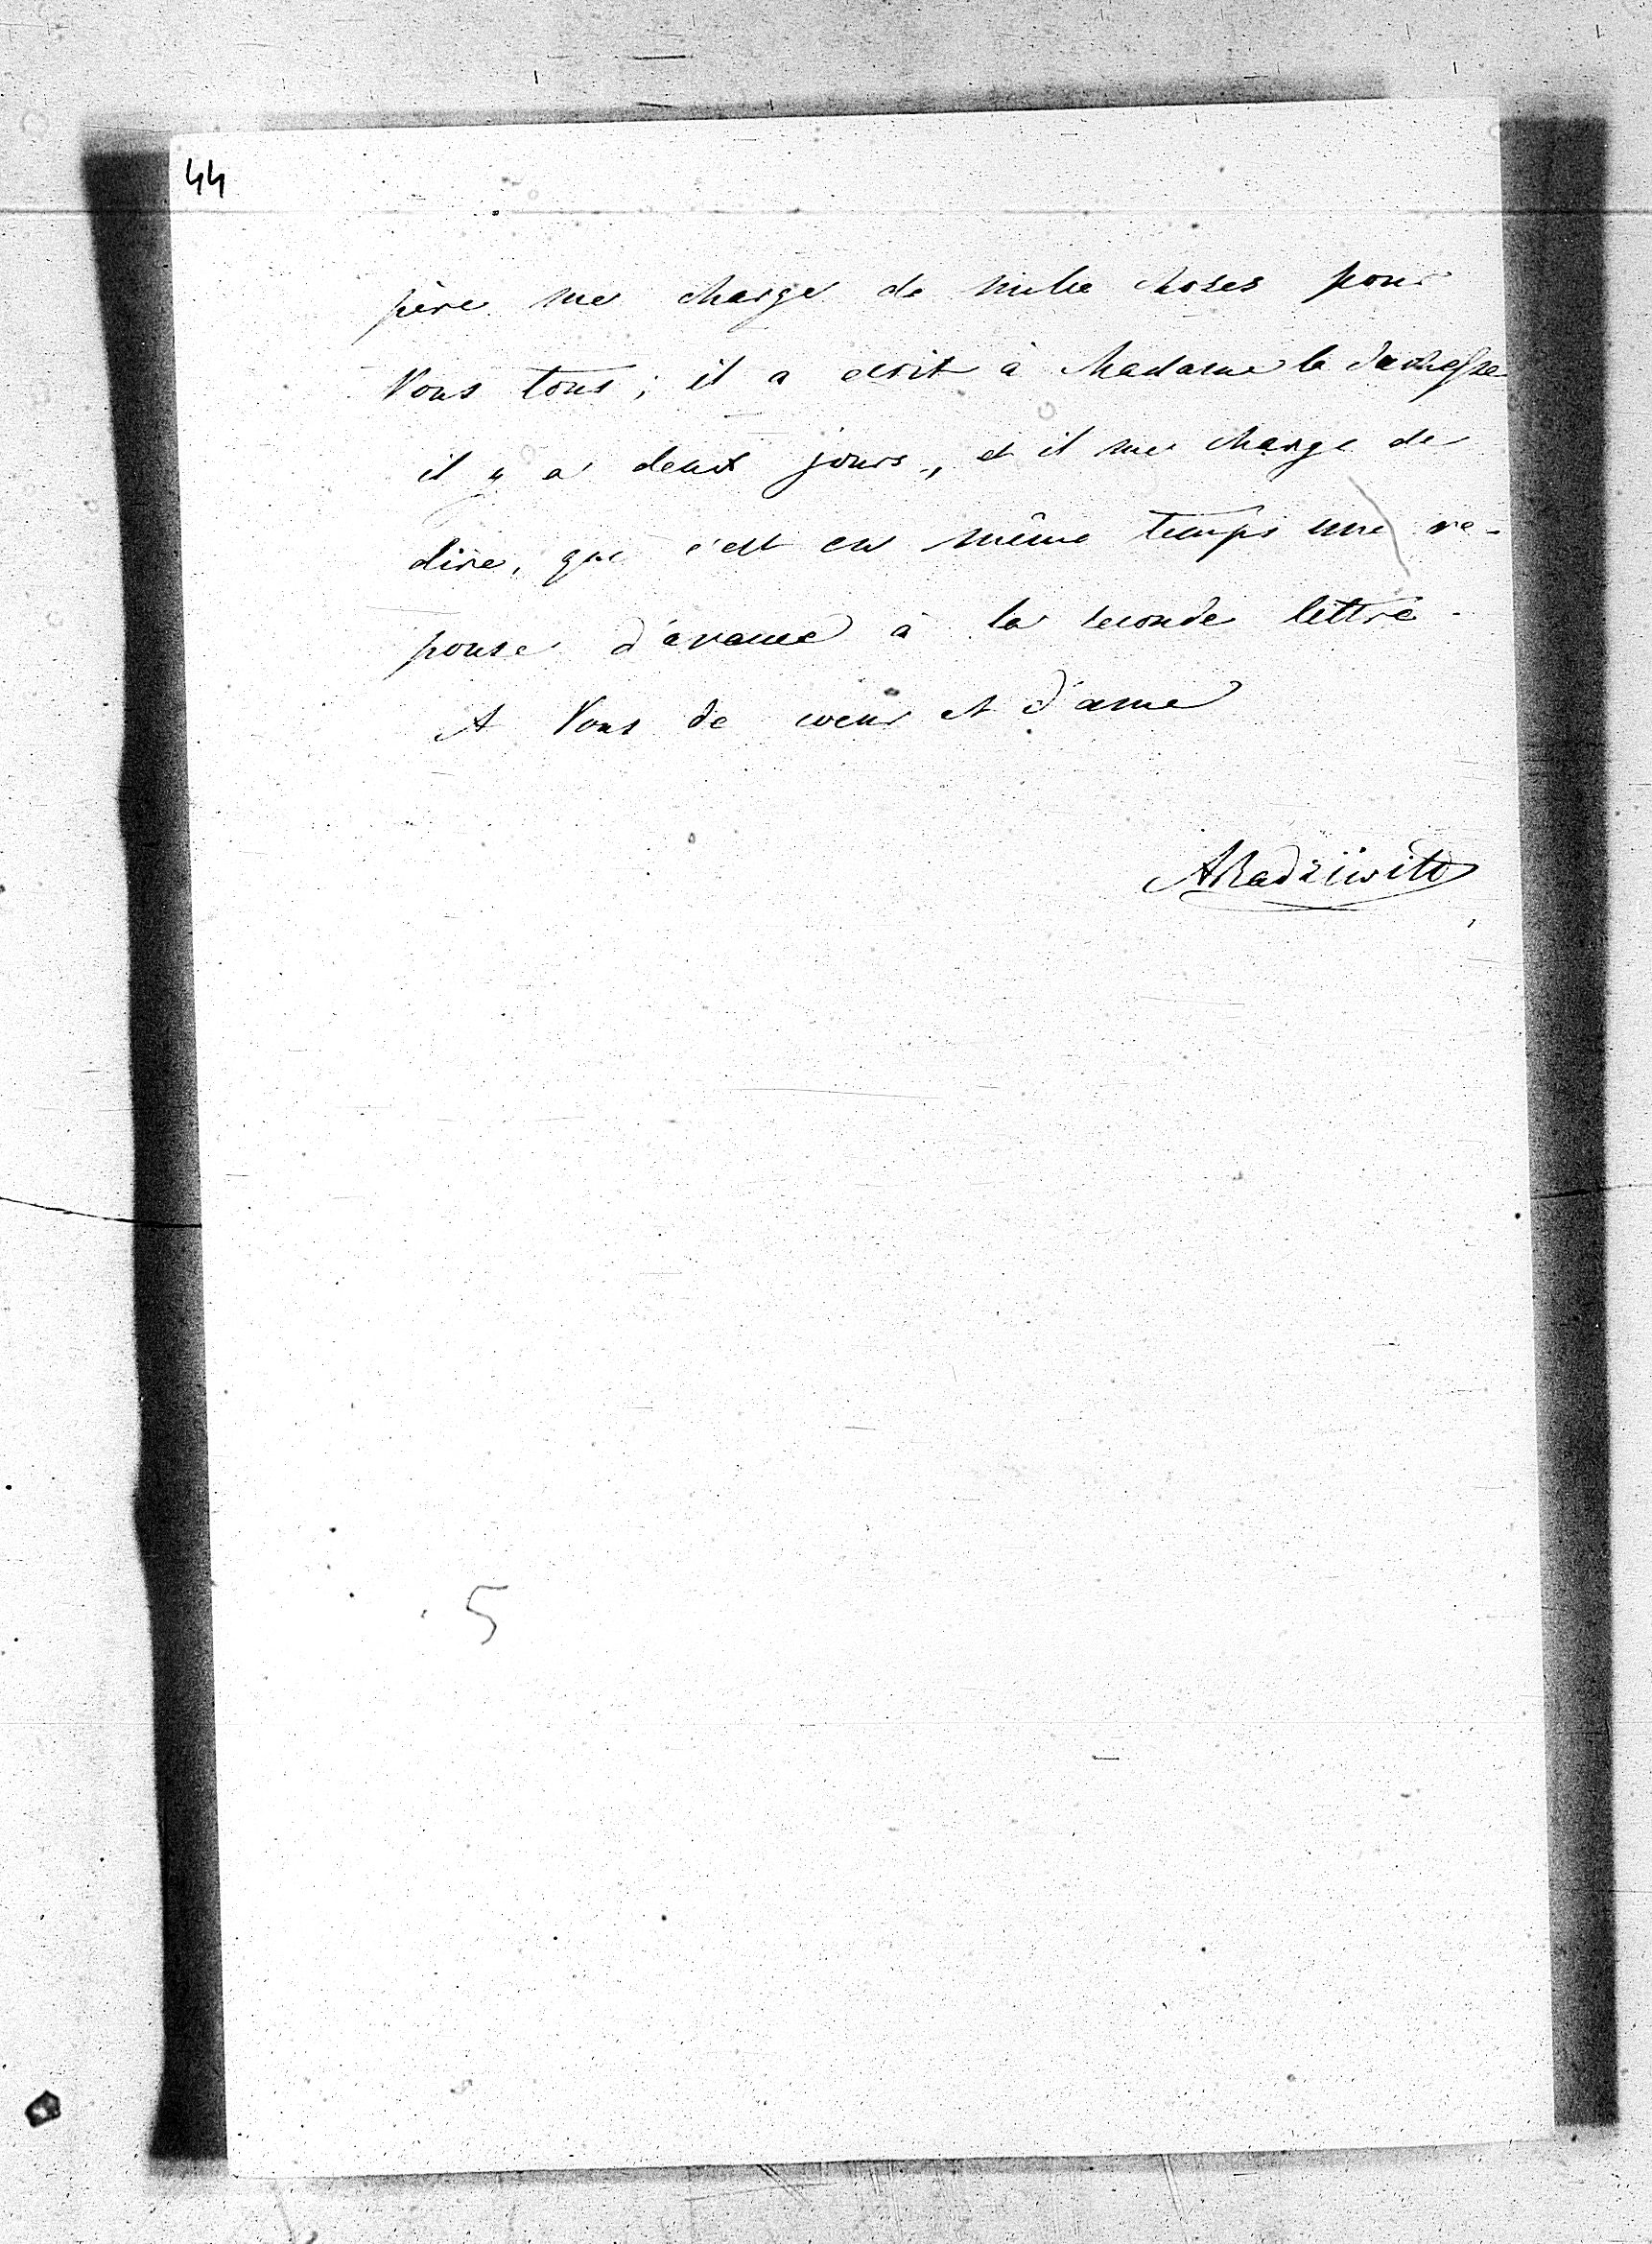 44
père me charge de mille choses pour
Vous tous; il a ecrit à Madame la Duchesse
il y a deux jours, et il me charge de
dire, que c'est en même temps une re-
ponse d'avance à la seconde lettre.
A Vous de coeur et d'ame
ARadziwill
5